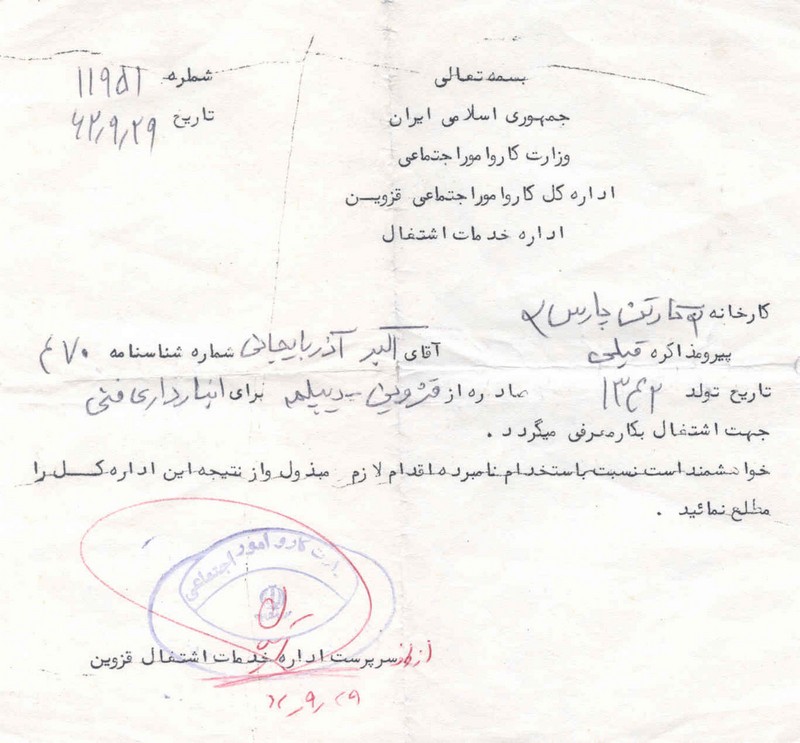 بسمه تعالی
شماره ۱۱۹۵۱
جمهوری اسلامی ایران
تاریخ ۶۲٫۹٫۲۹
وزارت کار و امور اجتماعی
اداره کل کار و امور اجتماعی قزوین
اداره خدمات اشتغال
کارخانه کارتن پارس
پیرو مذاکره قبلی آقای اکبر آذربایجانی شماره شناسنامه ۴۷۰
تاریخ تولد ۱۳۴۲ صادره از قزوین دیپلمه برای انبارداری فنی
جهت اشتغال بکار معرفی میگردد .
خواهشمند است نسبت باستخدام نامبرده اقدام لازم مبذول و از نتیجه این اداره کل را
مطلع نمائید .
وزارت کار و امور اجتماعی
سرپرست اداره خدمات اشتغال قزوین
۶۲٫۹٫۲۹